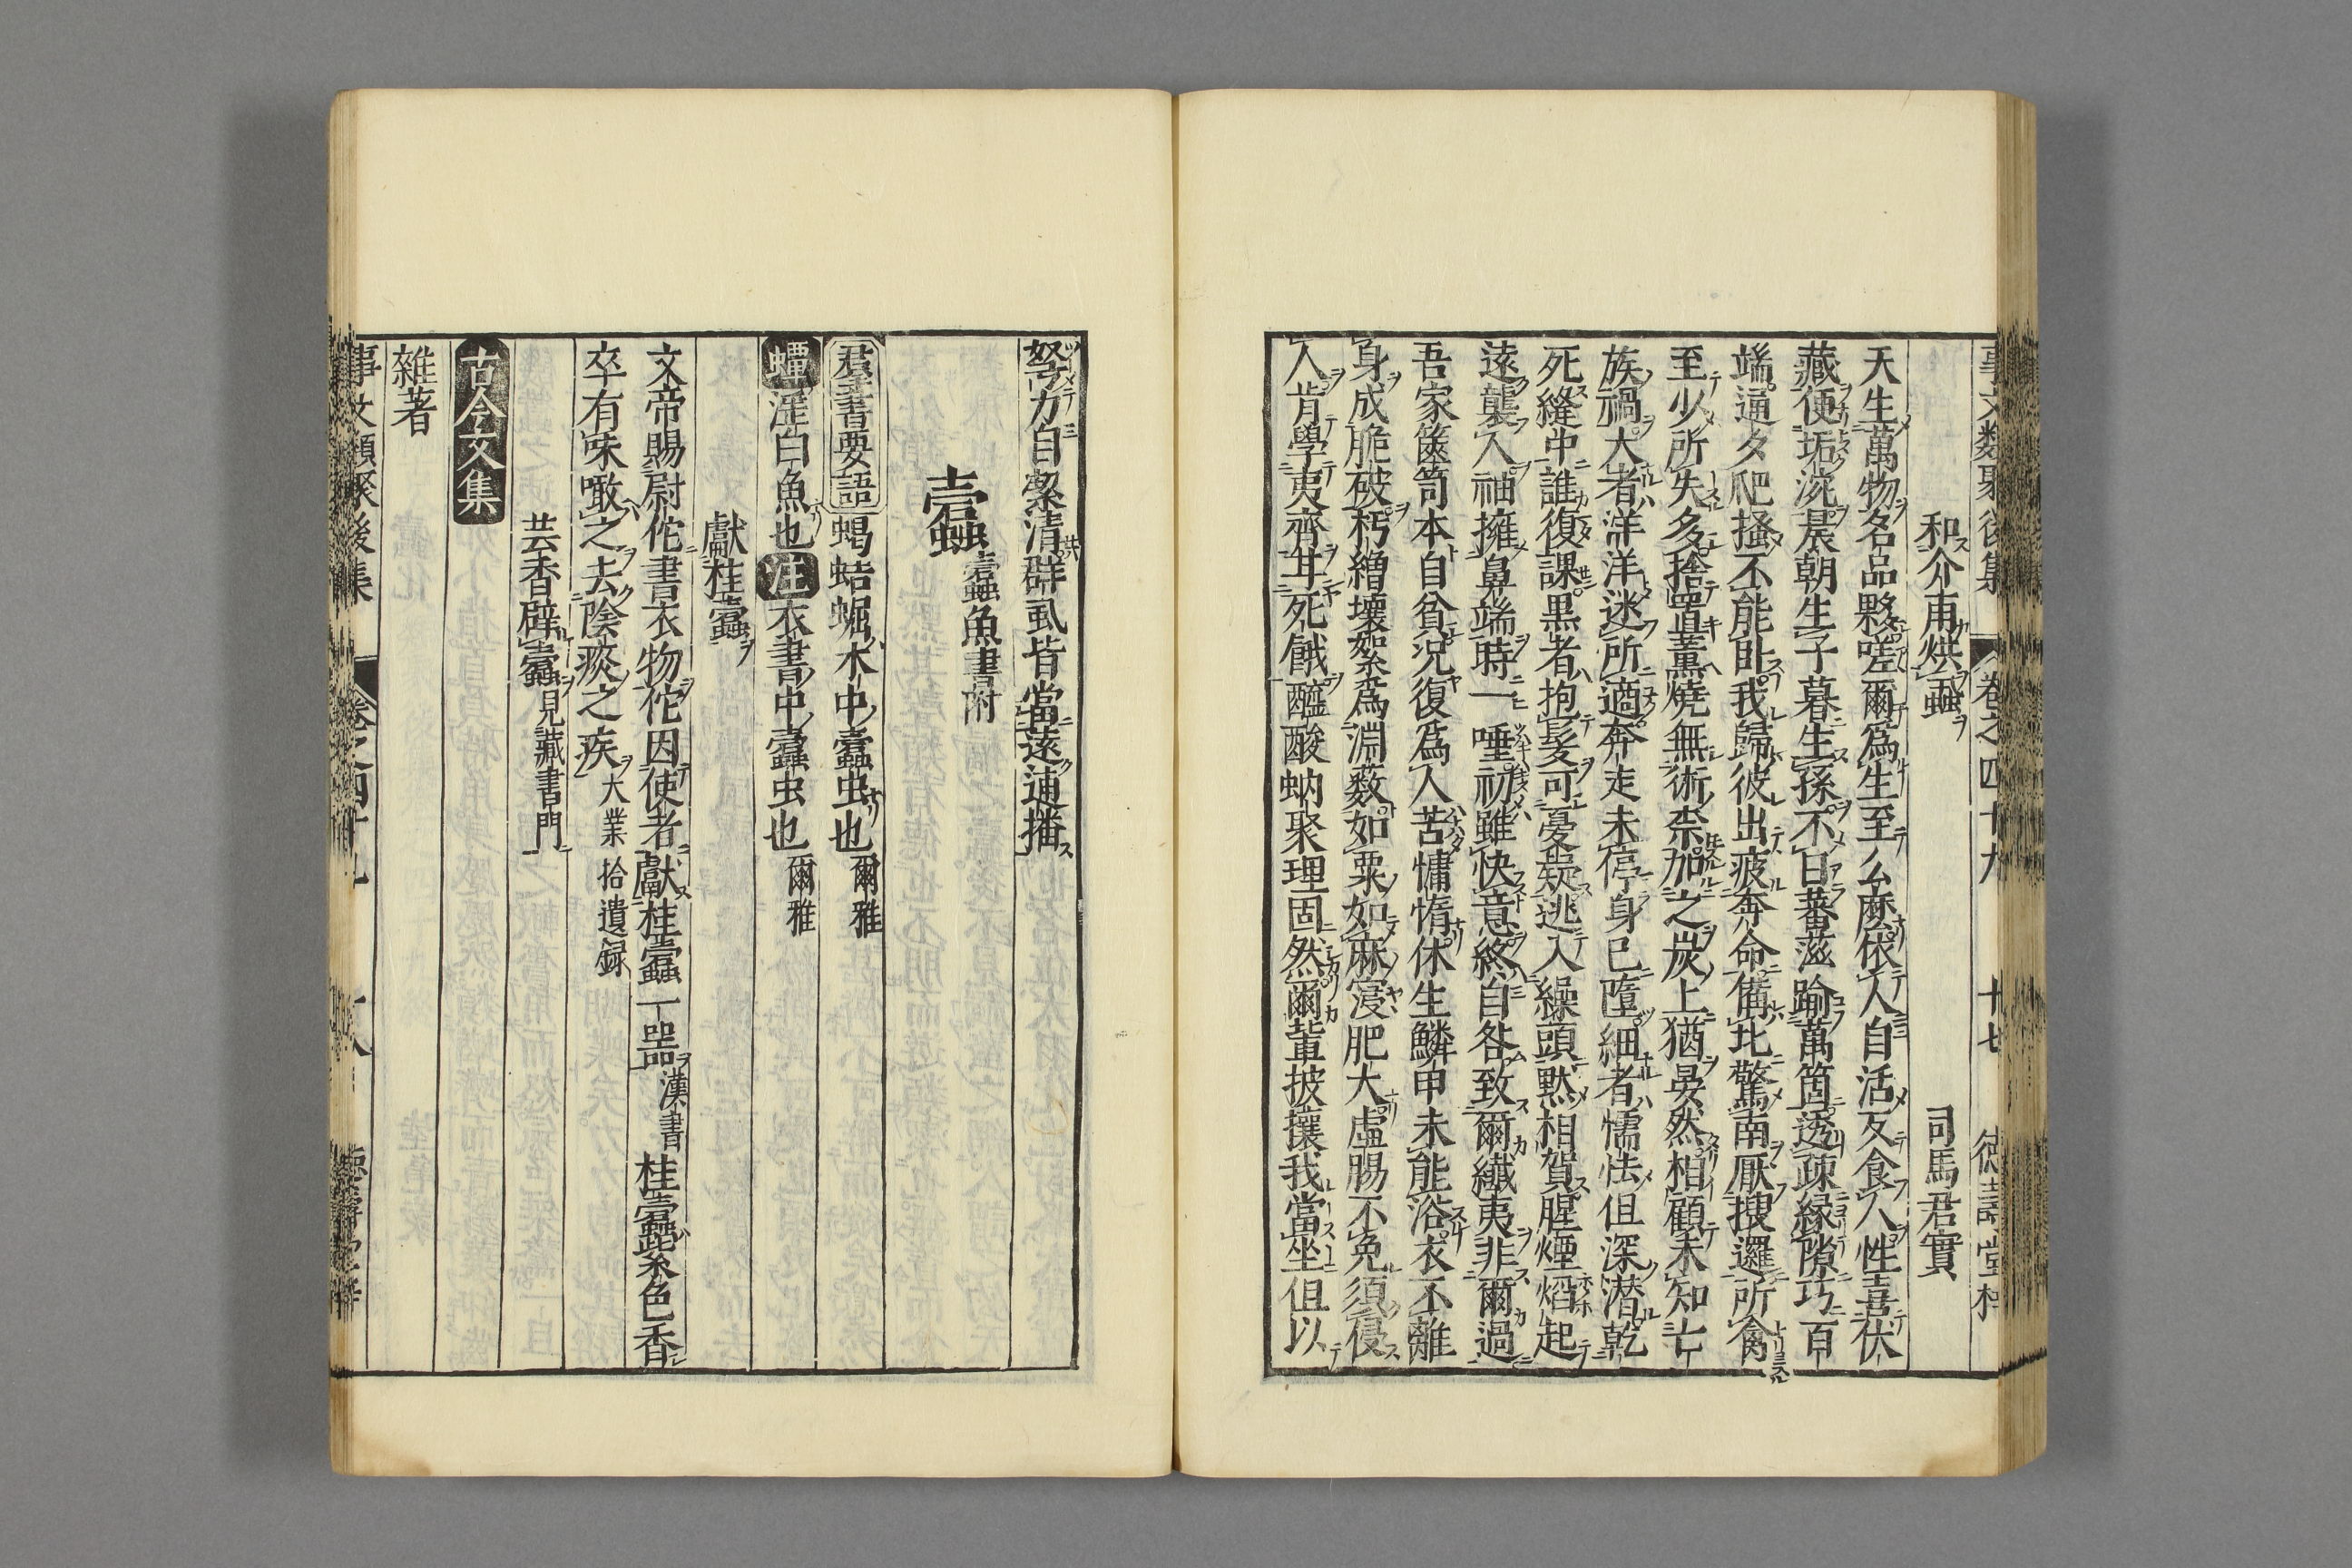 事文類聚後集　卷之四十九　十七　德壽堂梓
和介甫烘蝨　司馬君實
天生萬物名品夥嗟爾爲生至么麼依人自活反食人性喜伏
藏便垢涴晨朝生子暮生孫不日蕃滋踰萬箇透疎緣隙巧百
端通夕爬搔不能臥我歸彼出疲奔命備北驚南厭搜邏所禽
至少所失多捨置薰燒無術柰加之炭上猶晏然相顧未知亡
族禍大者洋洋迷所適奔走未停身已墮細者懦怯但深潜乾
死縫中誰復課黒者抱髪可憂疑逃入繰頭默相賀腥煙熖起
遠襲人袖擁鼻端時一唾初雖快意終自咎致爾纖夷非爾過
吾家篋笥本自貧况復爲人苦慵惰体生鱗甲未能浴衣不離
身成脆破朽繒壞絮爲淵藪如粟如麻寖肥大虛腸不免須侵
人肯學夷齊甘死餓醯酸蚋聚理固然爾輩披攘我當坐但以
努力自㓗清群虱皆當遠逋播
蠧蠧魚書附
群書要語蝎蛣蝠木中蠧虫也爾雅
蟫滛白魚也注衣書中蠧虫也爾雅
獻桂蠧
文帝賜尉佗書衣物佗因使者獻桂蠧一器漢書桂蠧紫色香
卒有味噉之去陰痰之疾大業拾遺録
芸香辟蠧見藏書門
古今文集
雜著
事文類聚後集　卷之四十九　十八　德壽堂梓